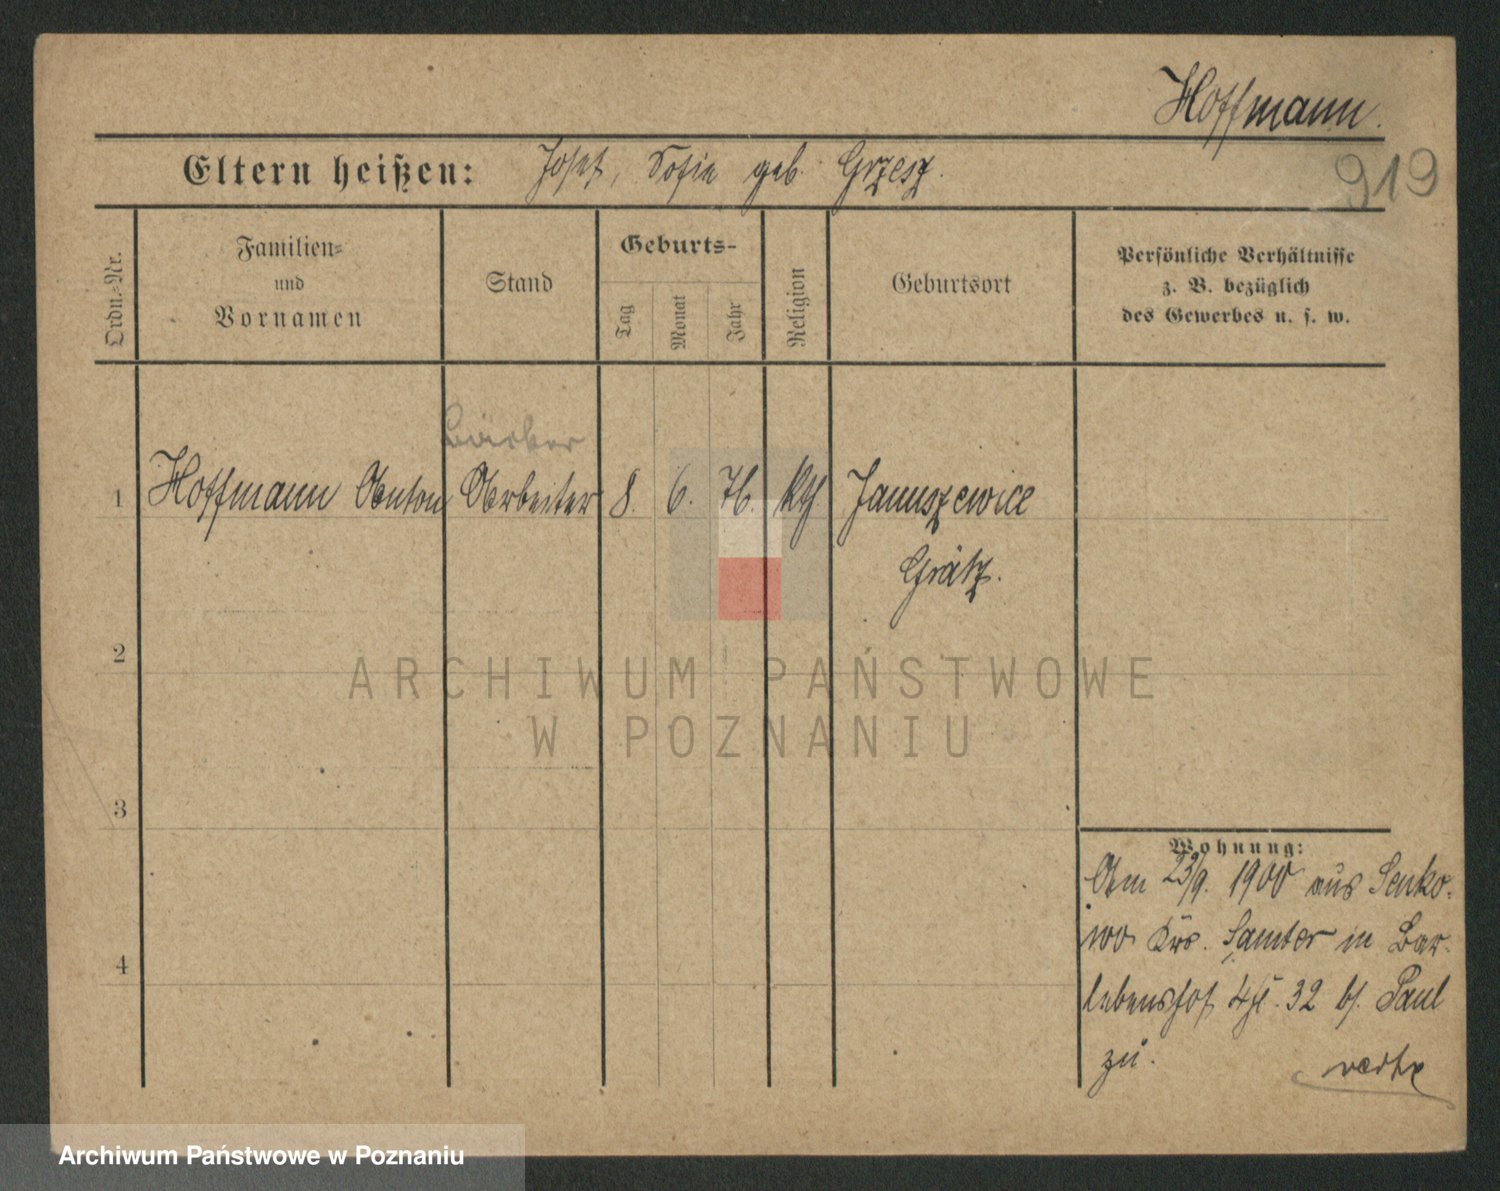 Hoffmann.
Eltern heißen: Josef, Sofie geb. Grzesz.
919
Ordn.-Nr.
Familien-
und
Vornamen
Stand
Geburts-
Tag
Monat
Jahr
Religion
Geburtsort
Persönliche Verhältnisse
z. B. bezüglich
des Gewerbes u. s. w.
1 Hoffmann Anton Arbeiter 8. 6. 76. kth Januszewice
Grätz.
2
3
4
Wohnung:
Am 23/9. 1900 aus Senko-
wo Krs. Samter in Bar-
lebenshof 32 b/. Paul
zu.
verte
ARCHIWUM PAŃSTWOWE
W POZNANIU
Archiwum Państwowe w Poznaniu